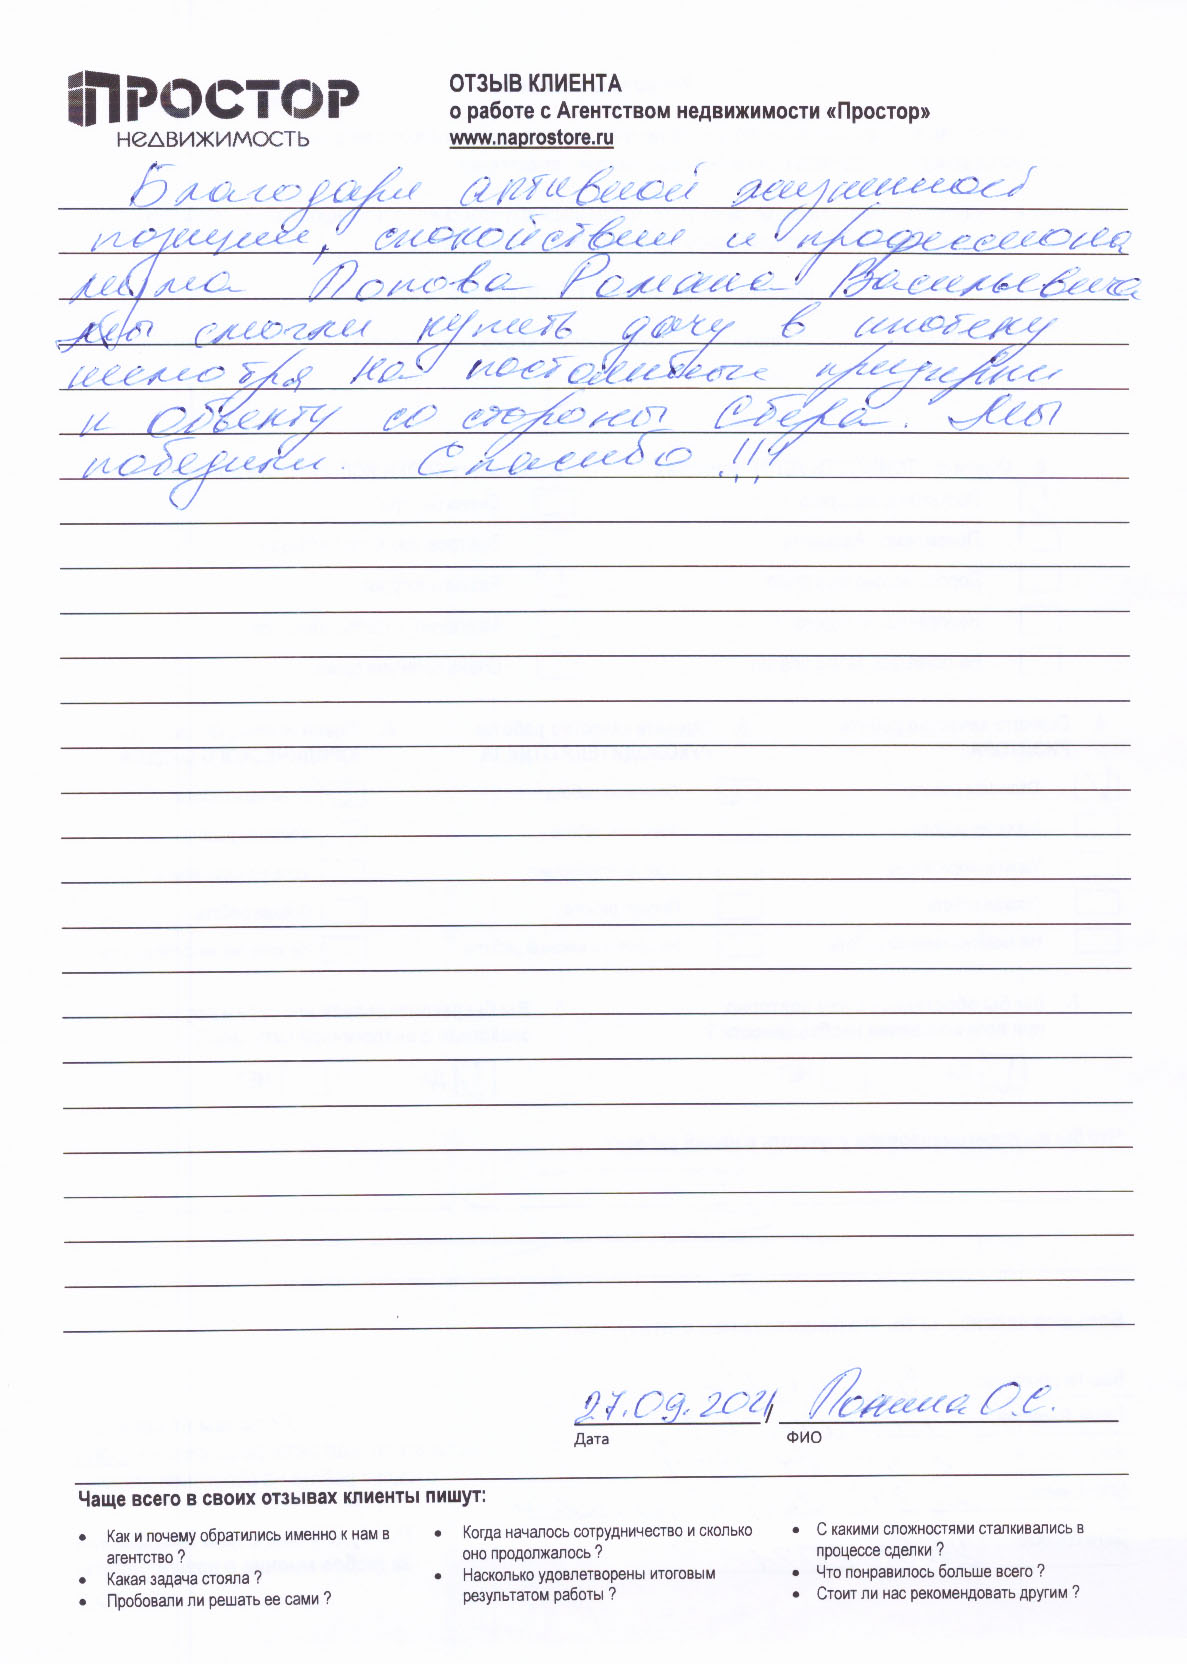 ПРОСТОР
НЕДВИЖИМОСТЬ
ОТЗЫВ КЛИЕНТА
о работе с Агентством недвижимости «Простор»
www.naprostore.ru
Благодаря активной жизненной
позиции, спокойствии и профессиона
лизма Попова Романа Васильевича
мы смогли купить дачу в ипотеку
несмотря на постоянные придирки
к объекту со стороны Сбера. Мы
победили. Спасибо !!!
27.09.2021 /
Дата
ФИО
Чаще всего в своих отзывах клиенты пишут:
• Как и почему обратились именно к нам в
агентство ?
• Какая задача стояла ?
• Пробовали ли решать ее сами ?
• Когда началось сотрудничество и сколько
оно продолжалось ?
• Насколько удовлетворены итоговым
результатом работы ?
• С какими сложностями сталкивались в
процессе сделки ?
• Что понравилось больше всего ?
• Стоит ли нас рекомендовать другим ?